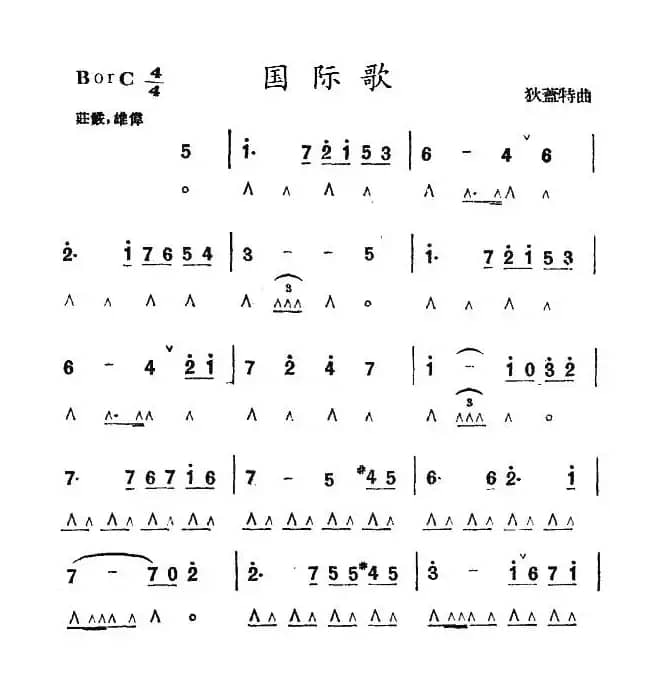 BorC 4/4 国际歌 狄盖特曲
莊嚴,雄偉
5 | i· 7 2̇ i 5 3 | 6 – 4 ˅ 6 |
o ∧ ∧ ∧ ∧ ∧ ∧· ∧∧ ∧
2̇· i 7 6 5 4 | 3 – – 5 | i· 7 2̇ i 5 3 |
3
∧ ∧ ∧ ∧ ∧ ∧∧∧ ∧ o ∧ ∧ ∧ ∧
6 – 4 ˅ 2̇ i | 7 2̇ 4̇ 7 | i – – i 0 3̇ 2̇ |
3
∧ ∧· ∧∧ ∧ ∧ ∧ ∧ ∧ ∧ ∧∧∧ ∧ o
7· 7 6 7 i 6 | 7 – 5 #4 5 | 6· 6 2̇· i |
∧ ∧ ∧ ∧ ∧ ∧ ∧ ∧ ∧ ∧ ∧ ∧ ∧ ∧ ∧ ∧ ∧ ∧ ∧ ∧ ∧ ∧ ∧ ∧
7 – 7 0 2̇ | 2̇· 7 5 5 #4 5 | 3̇ – i ˅ 6 7 i |
∧ ∧∧∧ ∧ ∧ o ∧ ∧ ∧ ∧ ∧ ∧ ∧ ∧ ∧ ∧∧∧ ∧ ∧ ∧ ∧ ∧